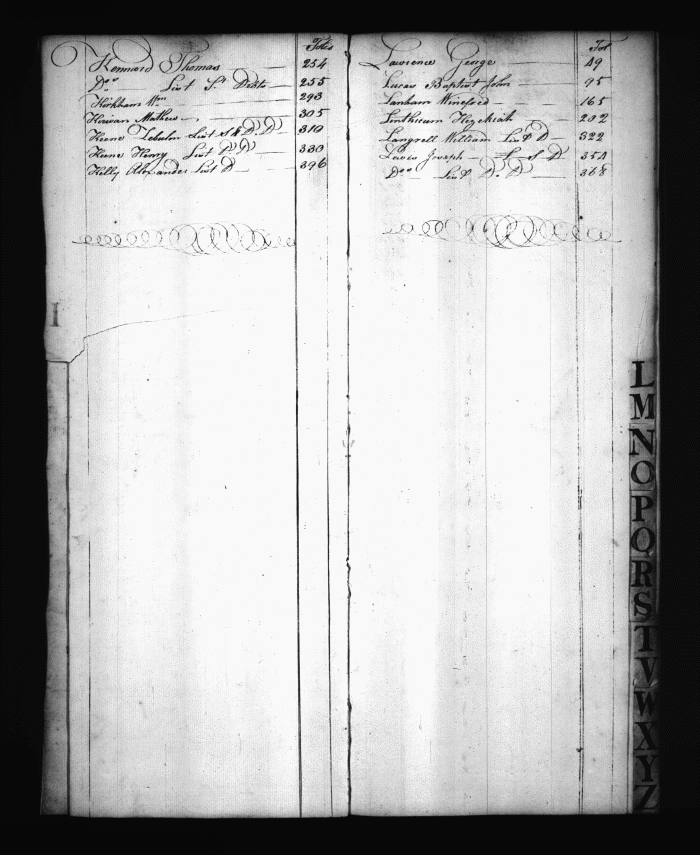 Folio
Kennard Thomas 254
Do. List Sp. Debts 255
Kirkham Wm 293
Kirwan Mathew 305
Keene Zebulon List S & D. D 310
Keene Henry List D D 330
Kelly Alexander List D 396
Fol
Lawrence George 49
Lucas Baptist John 95
Lanham Winefred 165
Linthicum Hezekiah 202
Langrell William List D 322
Lewis Joseph S D 354
Do. List D. D 368
I
L
M
N
O
P
Q
R
S
T
V
W
X
Y
Z